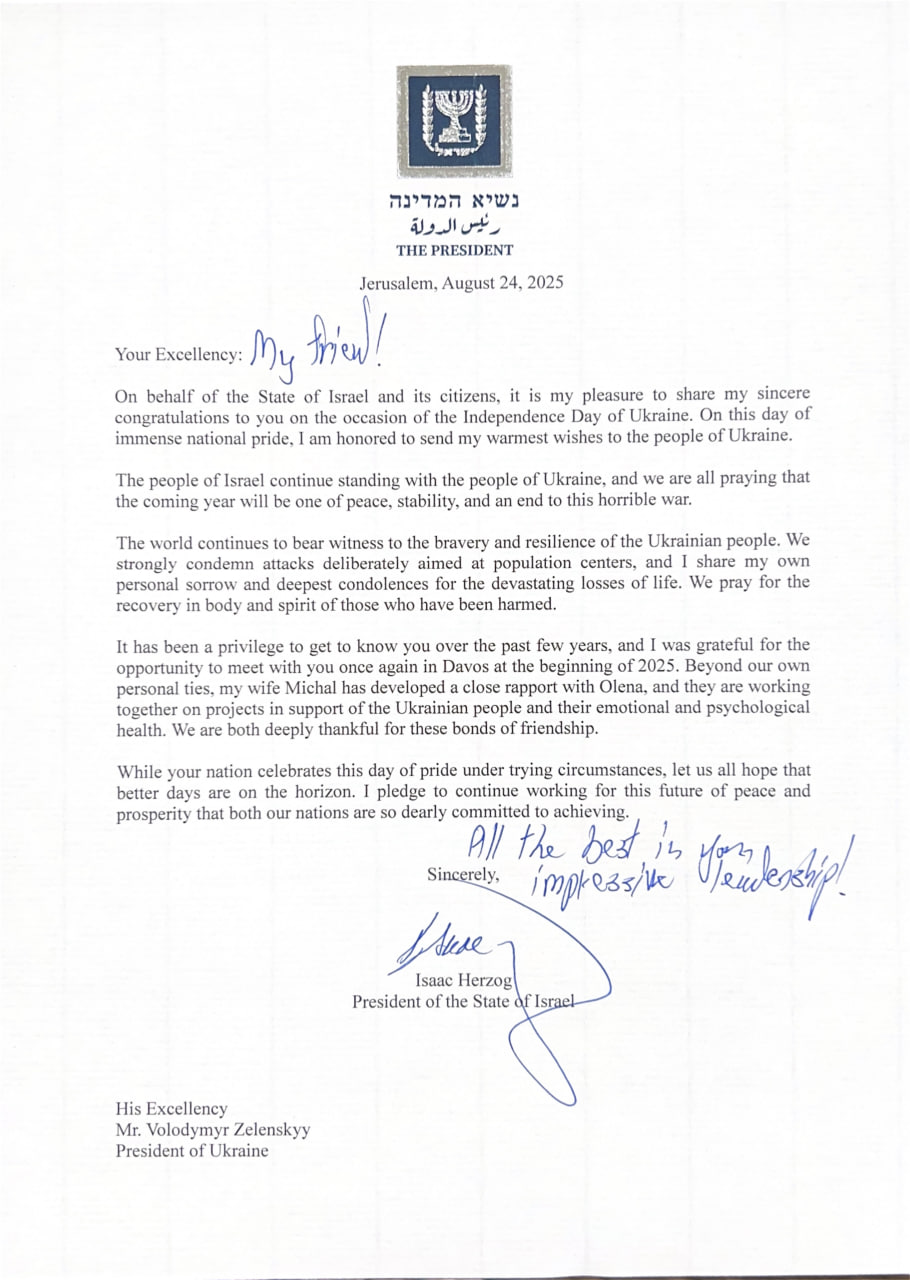 ישראל
נשיא המדינה
رئيس الدولة
THE PRESIDENT
Jerusalem, August 24, 2025
Your Excellency: My friend!
On behalf of the State of Israel and its citizens, it is my pleasure to share my sincere
congratulations to you on the occasion of the Independence Day of Ukraine. On this day of
immense national pride, I am honored to send my warmest wishes to the people of Ukraine.
The people of Israel continue standing with the people of Ukraine, and we are all praying that
the coming year will be one of peace, stability, and an end to this horrible war.
The world continues to bear witness to the bravery and resilience of the Ukrainian people. We
strongly condemn attacks deliberately aimed at population centers, and I share my own
personal sorrow and deepest condolences for the devastating losses of life. We pray for the
recovery in body and spirit of those who have been harmed.
It has been a privilege to get to know you over the past few years, and I was grateful for the
opportunity to meet with you once again in Davos at the beginning of 2025. Beyond our own
personal ties, my wife Michal has developed a close rapport with Olena, and they are working
together on projects in support of the Ukrainian people and their emotional and psychological
health. We are both deeply thankful for these bonds of friendship.
While your nation celebrates this day of pride under trying circumstances, let us all hope that
better days are on the horizon. I pledge to continue working for this future of peace and
prosperity that both our nations are so dearly committed to achieving.
All the best in your
impressive leadership!
Sincerely,
Isaac Herzog
President of the State of Israel
His Excellency
Mr. Volodymyr Zelenskyy
President of Ukraine